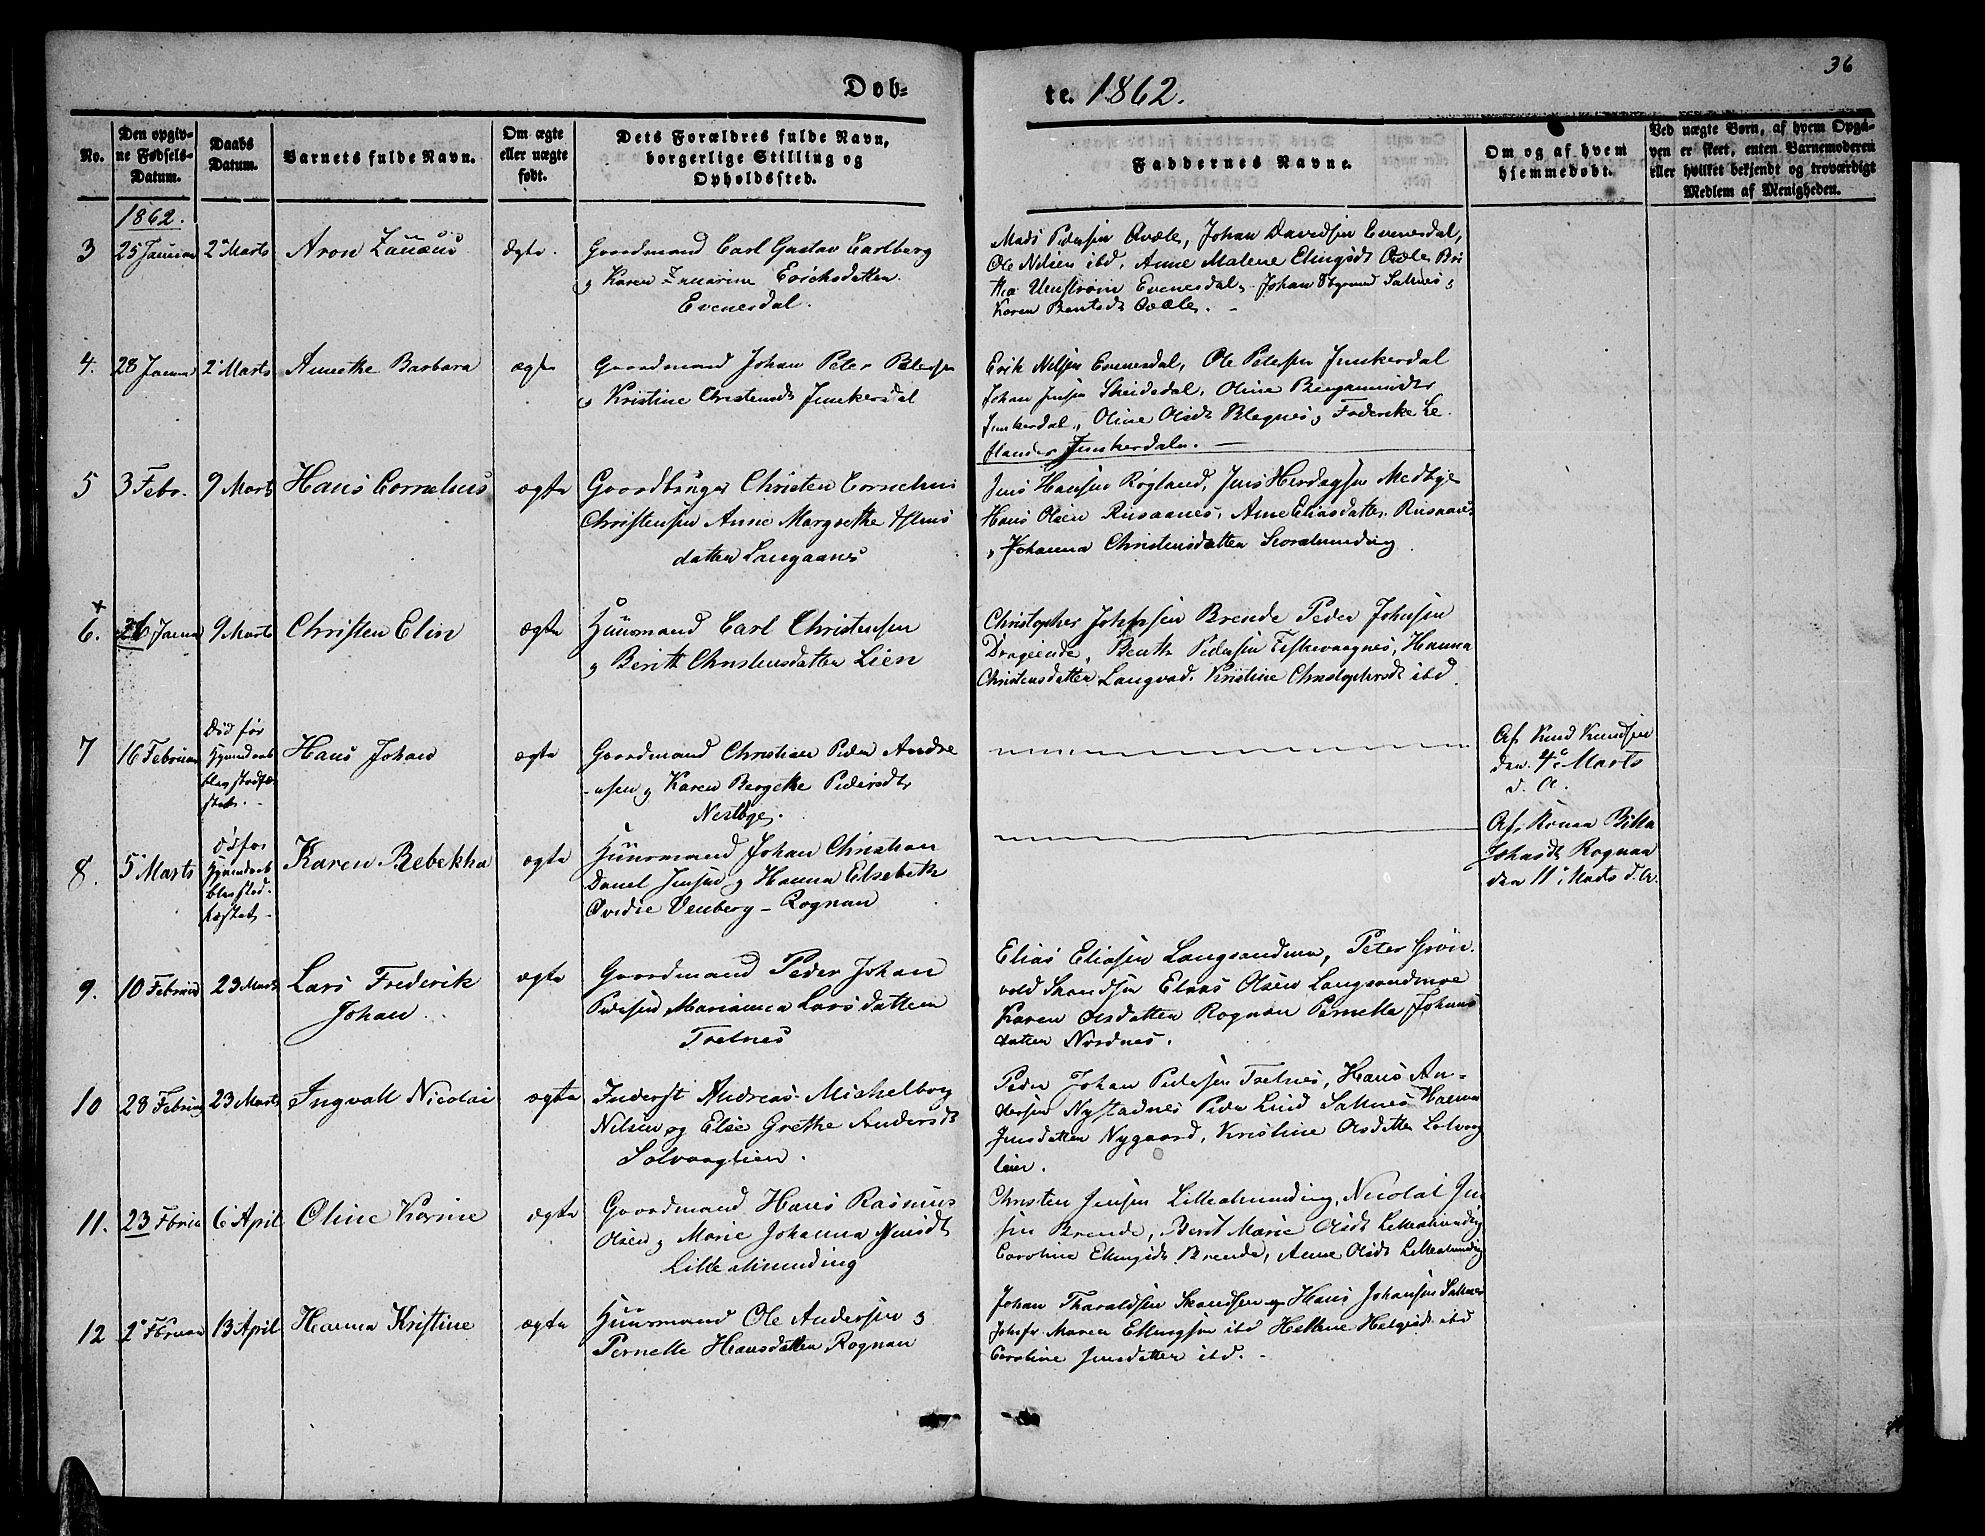 36
Døb=
te. 1862.
No.
Den opgiv-
ne Fødsels-
Datum.
Daabs
Datum.
Barnets fulde Navn.
Om ægte
eller uægte
født.
Dets Forældres fulde Navn,
borgerlige Stilling og
Opholdssted.
Faddernes Navne.
Om og af hvem
hjemmedøbt.
Ved uægte Børn, af hvem Opgi-
ven er skeet, enten Barnemoderen
eller hvilket bekjendt og troværdigt
Medlem af Menigheden.
1862.
3
25 Januar
2 Marts
Aron
Ægte.
Gaardmand Carl Gustav Carlberg
og Karen Erichsdatter
Evenesdal.
Mads Pedersen Johan Davidsen Evenesdal,
Ole Nilsen ibd, Anne Malene
Evenesdal, Johan Saltnes og
Karen Bentsdt
4.
28 Januar
2 Marts
Anethe Barbara
ægte
Gaardmand Johan Peter Petersen
og Kristine Christensdt Junkersdal
Erik Nilsen Evenesdal, Ole Petersen Junkerdal
Johan Jensen Skeidedal, Oline
Junkerdal, Oline Olsdt
Junkerdalen.
5
3 Febr.
9 Marts
Hans Cornelius
ægte
Gaardbruger Christen Cornelius
Christensen Anne Margrethe
datter Langaanes
Jens Hansen Røgland, Jens Medbye
Hans Olsen Rusaanes, Ane Eliasdatter Rusaanes
og Johanna Christensdatter Storalmending
6.
26 Januar
9 Marts
Christen Elin
ægte
Huusmand Carl Christensen
og Berith Christensdatter Lien
Christopher Brende Peder Johnsen
Drageide, Benth Pedersen Fiskevaagnes, Hanna
Christensdatter Langvad, Kristine Christophersdt ibd
7
16 Februar
Død før
Hans Johan
ægte
Gaardmand Christian Peder Andre
asen og Karen Bergethe Pedersdt
Nestbye.
Af Knud Knudsen
den 4 Marts
d. A.
8.
5 Marts
Karen Rebekka
ægte
Huusmand Johan Christian
Daniel Jensen og Hanna Elsebeth
Ovedie Venberg - Rognan
Af Kona
Johnsdt Rognan
den 11 Marts d. A.
9.
10 Februar
23 Marts
Lars Frederik
Johan
ægte
Gaardmand Peder Johan
Pedersen Marianna Larsdatter
Toetnes
Elias Eliasen Langsandmo, Peter Grøn
vold Skandsen Elias Olsen Langsandmoe
Karen Olsdatter Rognan Pernelle Johans
datter Nordnes.
10
28 Februar
23 Marts
Ingvall Nicolai
ægte
Inderst Andreas Michelborg
Nilsen og Else Grethe Andersdt
Solvaaglien.
Peder Johan Pedersen Toetnes, Hans An-
dersen Nystadnes Peder Lund Saltnes Hanna
Jensdatter Nygaard, Kristine Olsdatter Solvaag
lien.
11.
23 Februar
6 April
Oline Karine
ægte
Gaardmand Hans Rasmus
Olsen og Marie Johanna Jensdt
Lillealmending
Christen Jensen Lillealmending, Nicolai Jen
sen Brende, Berit Marie Olsdt Lillealmending
Caroline Ellingsdt Brende, Anne Olsdt Lillealmending
12
2 Februar
13 April
Hanna Kristine
ægte
Huusmand Ole Andersen og
Pernelle Hansdatter Rognan
Johan Tharaldsen Skandsen og Hans Johansen Saltnes
Maren Ellingsen ibd Hellene ibd
Caroline Jensdatter ibd.